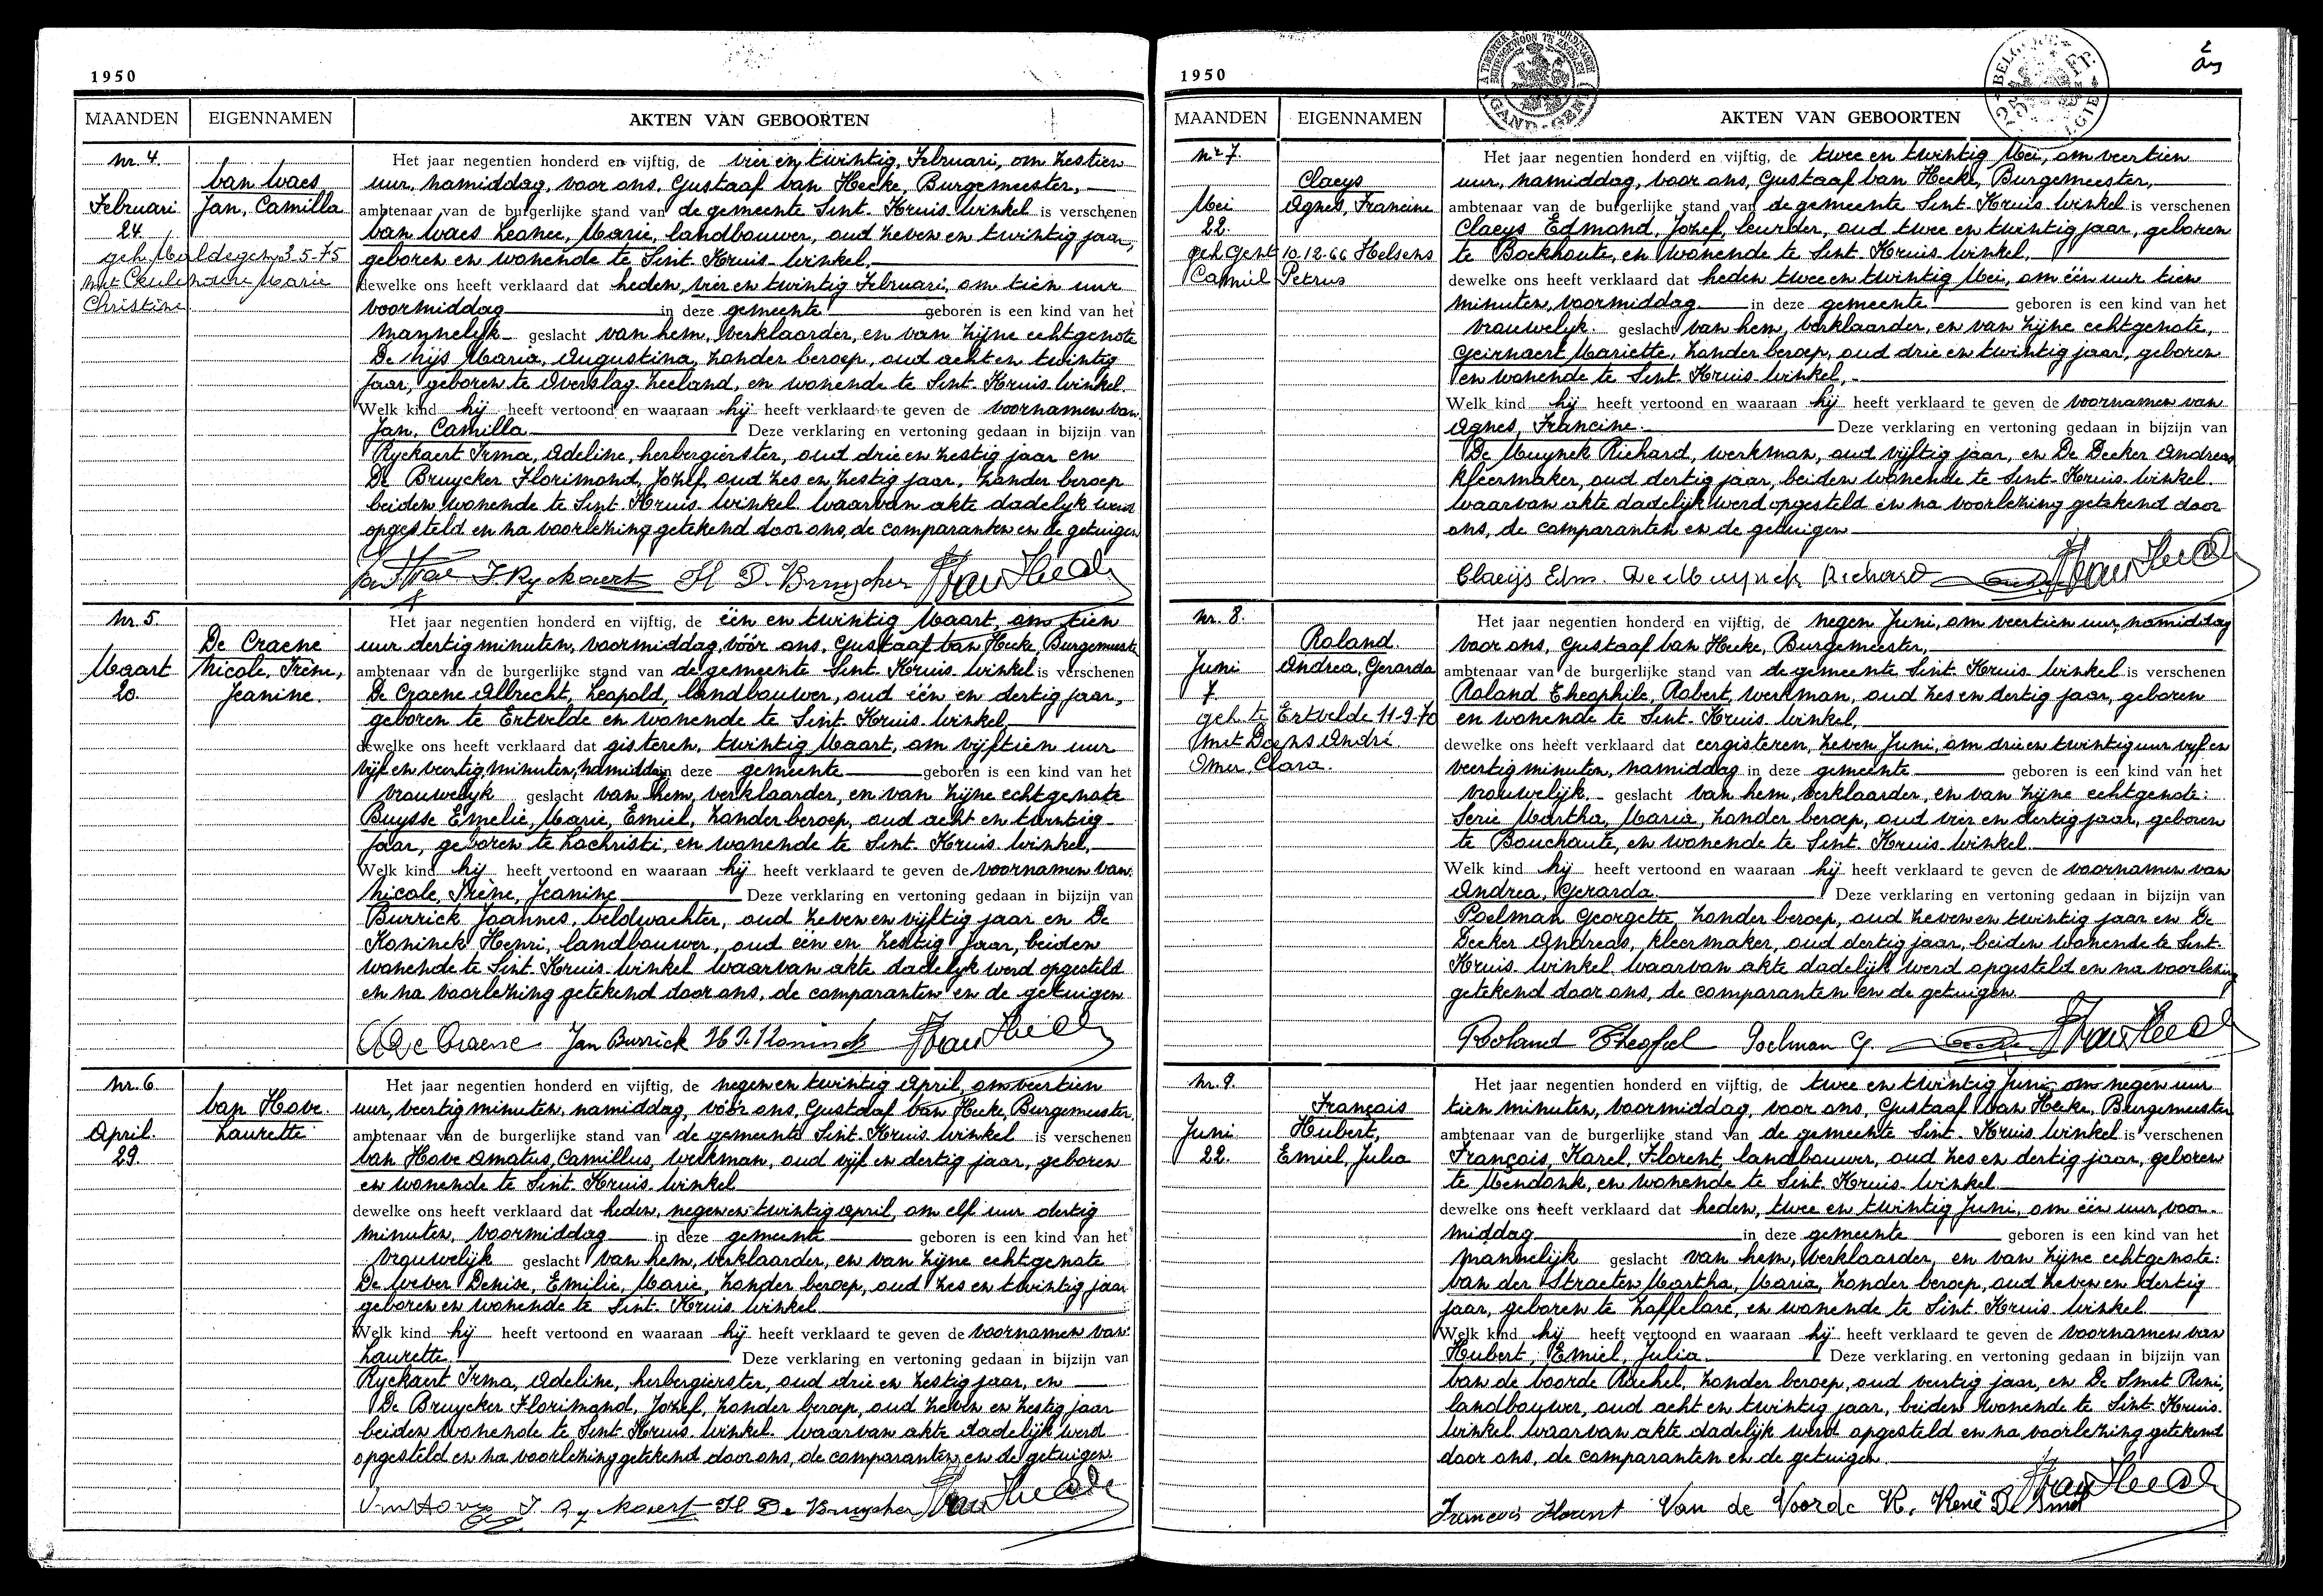 1950
MAANDEN EIGENNAMEN AKTEN VAN GEBOORTEN
nr. 4.
Van Waes
Februari Jan, Camilla
24
geh Maldegem 3-5-75
met Ceulenaere Marie
Christine
Het jaar negentien honderd en vijftig, de vier en twintig Februari, om zestien
uur, namiddag, voor ons, Gustaaf Van Hecke, Burgemeester,
ambtenaar van de burgerlijke stand van de gemeente Sint-Kruis-Winkel is verschenen
Van Waes Leonce, Marie, landbouwer, oud zeven en twintig jaar,
geboren en wonende te Sint-Kruis-Winkel,
dewelke ons heeft verklaard dat heden, vier en twintig Februari, om tien uur
voormiddag in deze gemeente geboren is een kind van het
mannelijk geslacht van hem, verklaarder, en van zijne echtgenote
De Nijs Maria, Augustina, zonder beroep, oud acht en twintig
jaar, geboren te Overslag-Zeeland, en wonende te Sint-Kruis-Winkel
Welk kind hij heeft vertoond en waaraan hij heeft verklaard te geven de voornamen van
Jan, Camilla Deze verklaring en vertoning gedaan in bijzijn van
Ryckaert Irma, Adeline, herbergierster, oud drie en zestig jaar en
De Bruycker Florimond, Jozef, oud zes en zestig jaar, zonder beroep
beiden wonende te Sint-Kruis-Winkel waarvan akte dadelijk werd
opgesteld en na voorlezing getekend door ons, de comparanten en de getuigen
I Ryckaert Fl D. Bruycker Van Hecke
nr. 5.
De Craene
Maart Nicole, Irène,
20 Jeanine.
Het jaar negentien honderd en vijftig, de één en twintig Maart, om tien
uur dertig minuten, voormiddag, vóór ons, Gustaaf Van Hecke, Burgemeester
ambtenaar van de burgerlijke stand van de gemeente Sint-Kruis-Winkel is verschenen
De Craene Albrecht, Leopold, landbouwer, oud één en dertig jaar,
geboren te Ertvelde en wonende te Sint-Kruis-Winkel,
dewelke ons heeft verklaard dat gisteren, twintig Maart, om vijftien uur
vijf en veertig minuten, namiddag in deze gemeente geboren is een kind van het
vrouwelijk geslacht van hem, verklaarder, en van zijne echtgenote
Buysse Emelie, Marie, Emiel, zonder beroep, oud acht en twintig
jaar, geboren te Lochristi, en wonende te Sint-Kruis-Winkel,
Welk kind hij heeft vertoond en waaraan hij heeft verklaard te geven de voornamen van
Nicole, Irène, Jeanine Deze verklaring en vertoning gedaan in bijzijn van
Burrick Joannes, veldwachter, oud zeven en vijftig jaar en De
Koninck Henri, landbouwer, oud één en zestig jaar, beiden
wonende te Sint-Kruis-Winkel waarvan akte dadelijk werd opgesteld
en na voorlezing getekend door ons, de comparanten en de getuigen
A De Craene Jan Burrick H De Koninck Van Hecke
nr. 6.
Van Hove.
April. Laurette
29
Het jaar negentien honderd en vijftig, de negen en twintig April, om veertien
uur, veertig minuten, namiddag, vóór ons, Gustaaf Van Hecke, Burgemeester,
ambtenaar van de burgerlijke stand van de gemeente Sint-Kruis-Winkel is verschenen
Van Hove Amatus, Camillus, werkman, oud vijf en dertig jaar, geboren
en wonende te Sint-Kruis-Winkel
dewelke ons heeft verklaard dat heden, negen en twintig April, om elf uur dertig
minuten, voormiddag in deze gemeente geboren is een kind van het
vrouwelijk geslacht van hem, verklaarder, en van zijne echtgenote
De Wever Denise, Emilie, Marie, zonder beroep, oud zes en twintig jaar
geboren en wonende te Sint-Kruis-Winkel
Welk kind hij heeft vertoond en waaraan hij heeft verklaard te geven de voornamen van
Laurette. Deze verklaring en vertoning gedaan in bijzijn van
Ryckaert Irma, Adeline, herbergierster, oud drie en zestig jaar, en
De Bruycker Florimond, Jozef, zonder beroep, oud zeven en zestig jaar
beiden wonende te Sint-Kruis-Winkel waarvan akte dadelijk werd
opgesteld en na voorlezing getekend door ons, de comparanten en de getuigen
Van Hove I Ryckaert Fl De Bruycker Van Hecke
1950
2
MAANDEN EIGENNAMEN AKTEN VAN GEBOORTEN
GAND - GENT
BELGIQUE Fr. BELGIE
nr 7.
Claeys
Mei Agnes, Francine
22
geh Gent 10.12.66 Helsens
Camiel Petrus
Het jaar negentien honderd en vijftig, de twee en twintig Mei, om veertien
uur, namiddag, voor ons, Gustaaf Van Hecke, Burgemeester,
ambtenaar van de burgerlijke stand van de gemeente Sint-Kruis-Winkel is verschenen
Claeys Edmond, Jozef, leurder, oud twee en twintig jaar, geboren
te Boekhoute, en wonende te Sint-Kruis-Winkel,
dewelke ons heeft verklaard dat heden twee en twintig Mei, om één uur tien
minuten, voormiddag in deze gemeente geboren is een kind van het
vrouwelijk geslacht van hem, verklaarder, en van zijne echtgenote,
Geirnaert Mariette, zonder beroep, oud drie en twintig jaar, geboren
en wonende te Sint-Kruis-Winkel,
Welk kind hij heeft vertoond en waaraan hij heeft verklaard te geven de voornamen van
Agnes, Francine. Deze verklaring en vertoning gedaan in bijzijn van
De Muynck Richard, werkman, oud vijftig jaar, en De Decker Andreas
kleermaker, oud dertig jaar, beiden wonende te Sint-Kruis-Winkel.
Waarvan akte dadelijk werd opgesteld en na voorlezing getekend door
ons, de comparanten en de getuigen
Claeijs Edm. De Muynck Richard Van Hecke
nr. 8.
Roland.
Juni Andrea, Gerarda
7
geh te Ertvelde 11-9-70
met Doens André
Omer, Clara.
Het jaar negentien honderd en vijftig, de negen Juni, om veertien uur, namiddag
voor ons, Gustaaf Van Hecke, Burgemeester,
ambtenaar van de burgerlijke stand van de gemeente Sint-Kruis-Winkel is verschenen
Roland Theophile, Robert, werkman, oud zes en dertig jaar, geboren
en wonende te Sint-Kruis-Winkel,
dewelke ons heeft verklaard dat eergisteren, zeven Juni, om drie en twintig uur vijf en
veertig minuten, namiddag in deze gemeente geboren is een kind van het
vrouwelijk geslacht van hem, verklaarder, en van zijne echtgenote:
Serie Martha, Maria, zonder beroep, oud vier en dertig jaar, geboren
te Bouchaute, en wonende te Sint-Kruis-Winkel.
Welk kind hij heeft vertoond en waaraan hij heeft verklaard te geven de voornamen van
Andrea, Gerarda. Deze verklaring en vertoning gedaan in bijzijn van
Poelman Georgette, zonder beroep, oud zeven en twintig jaar en De
Decker Andreas, kleermaker, oud dertig jaar, beiden wonende te Sint-
Kruis-Winkel waarvan akte dadelijk werd opgesteld en na voorlezing
getekend door ons, de comparanten en de getuigen
Roland Theofiel Poelman G. Van Hecke
nr. 9.
Français
Juni Hubert,
22. Emiel, Julia
Het jaar negentien honderd en vijftig, de twee en twintig Juni, om negen uur
tien minuten, voormiddag, voor ons, Gustaaf Van Hecke, Burgemeester
ambtenaar van de burgerlijke stand van de gemeente Sint-Kruis-Winkel is verschenen
François, Karel, Florent, landbouwer, oud zes en dertig jaar, geboren
te Mendonk, en wonende te Sint-Kruis-Winkel
dewelke ons heeft verklaard dat heden, twee en twintig Juni, om één uur, voor-
middag in deze gemeente geboren is een kind van het
mannelijk geslacht van hem, verklaarder, en van zijne echtgenote:
Van der Straeten Martha, Maria, zonder beroep, oud zeven en dertig
jaar, geboren te Zaffelare, en wonende te Sint-Kruis-Winkel
Welk kind hij heeft vertoond en waaraan hij heeft verklaard te geven de voornamen van
Hubert, Emiel, Julia. Deze verklaring en vertoning gedaan in bijzijn van
Van de Voorde Rachel, zonder beroep, oud veertig jaar, en De Smet René,
landbouwer, oud acht en twintig jaar, beiden wonende te Sint-Kruis-
Winkel waarvan akte dadelijk werd opgesteld en na voorlezing getekend
door ons, de comparanten en de getuigen
Francois Florent Van de Voorde R. René De Smet Van Hecke